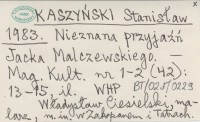 KASZYŃSKI Stanisław
1983. Nieznana przyjaźń
Jacka Malczewskiego. –
Mag. Kult. nr 1-2 (42):
13-15, il. WHP BT/02J/0223
Władysław Ciesielski, ma-
larz, m.in. w Zakopanem i Tatrach.